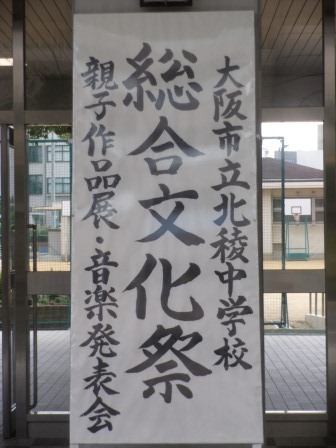 大阪市立北稜中学校
総合文化祭
親子作品展・音楽発表会